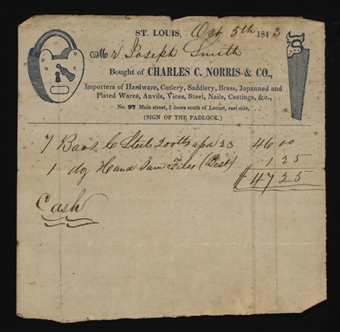 ST. LOUIS, Oct 5th 1843
Mr Joseph Smith
Bought of CHARLES C. NORRIS & CO.,
Importers of Hardware, Cutlery, Saddlery, Brass, Japanned and
Plated Wares, Anvils, Vices, Steel, Nails, Castings, &c.,
No. 97 Main street, 3 doors south of Locust, east side,
(SIGN OF THE PADLOCK.)
7 Bars C Steel 200 lbs 23 46 00
1 dz Hand Saw Files (Best) 1 25
$47 25
Cash